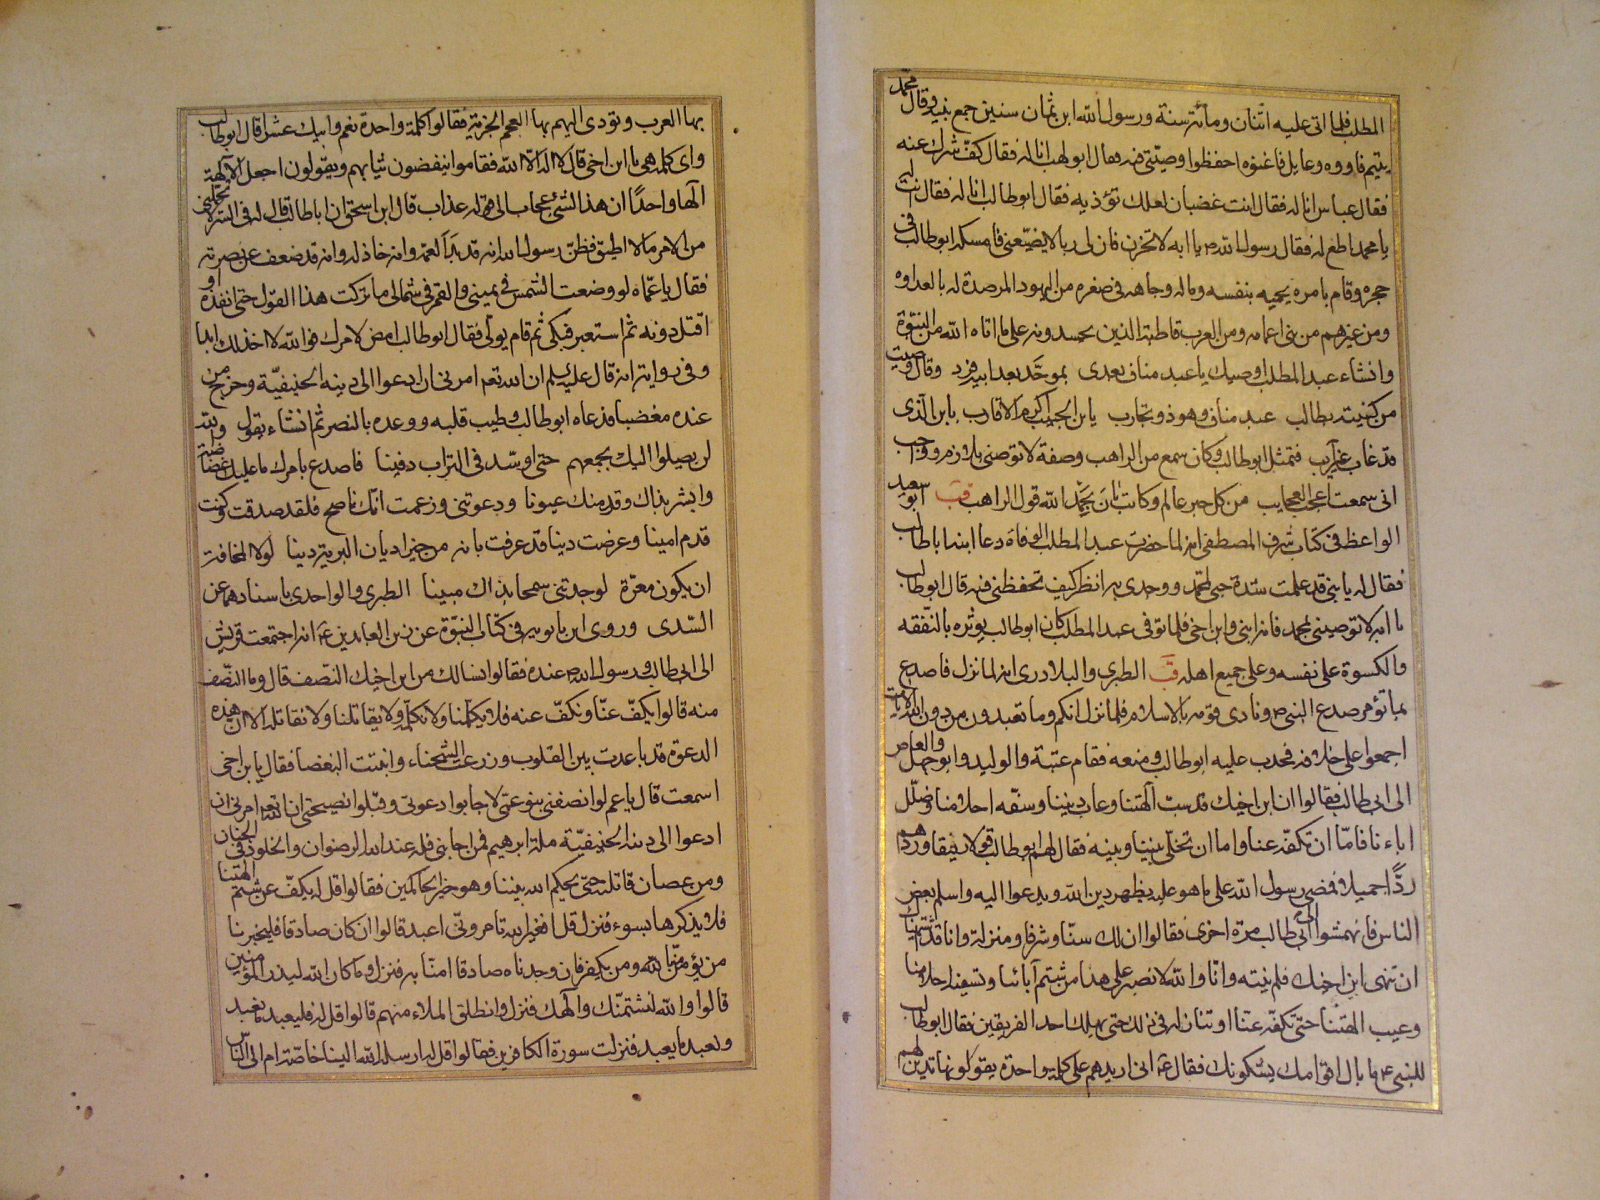 المطلب فلما اتى عليه اثنتان ومائة سنة ورسول الله ابن ثمان سنين جمع بنيه وقال محمد
يتيم فاووه وعايل فاغنوه احفظوا وصيتي فيه فقال ابو لهب انا له فقال كف شرك عنه
فقال عباس انا له فقال انت غضبان لعلك تؤذيه فقال ابو طالب انا له فقال انت له
يا محمد اطع له فقال رسول الله ص يا ابه لا تحزن فان لي ربا لا يضيعني فامسكه ابو طالب في
حجره وقام بامره يحميه بنفسه وماله وجاهه في صغره من اليهود المرصدة له بالعداوه
ومن غيرهم من بني اعمامه ومن العرب قاطبة الذين يحسدونه على ما اتاه الله من النبوة
وانشاء عبد المطلب اوصيك يا عبد مناف بعدى بموحد بعد ابيه فرد وقال وصيت
من كنيته بطالب عبد مناف وهو ذو تجارب يا بن الحبيب اكرم الاقارب يا بن الذى
قد غاب غير آيب فتمثل ابو طالب وكان سمع من الراهب وصفه لا توصني بلازم وواجب
انى سمعت اعجب العجايب من كل حبر عالم وكاتب بان بحمد الله قول الراهب قب ابو سعيد
الواعظ في كتاب شرف المصطفى انه لما حضرت عبد المطلب الوفاة دعا ابنه ابا طالب
فقال له يا بني قد علمت شدة حبي لمحمد ووجدى به انظر كيف تحفظني فيه قال ابو طالب
يا ابه لا توصيني بمحمد فانه ابني وابن اخى فلما توفى عبد المطلب كان ابو طالب يوثره بالنفقه
والكسوة على نفسه وعلى جميع اهله قب الطبرى والبلاذرى انه لما نزل فاصدع
بما تؤمر صدع النبي ص ونادى قومه بالاسلام فلما نزل انكم وما تعبدون من دون الله الاية
اجمعوا على خلافه فحدب عليه ابو طالب ومنعه فقام عتبة والوليد وابو جهل والعاص
الى ابى طالب فقالوا ان ابن اخيك قد سب آلهتنا وعاب ديننا وسفه احلامنا وضلل
اباءنا فاما ان تكفه عنا واما ان تخلى بيننا وبينه فقال لهم ابو طالب قولا رفيقا وردهم
ردا جميلا فمضى رسول الله على ما هو عليه يظهر دين الله ويدعوا اليه واسلم بعض
الناس فانهمشوا الى ابى طالب مرة اخرى فقالوا ان لك سنا وشرفا ومنزلة وانا قد اشتهيناك
ان تنهى ابن اخيك فلم ينته وانا والله لا نصبر على هذا من شتم آبائنا وتسفيه احلامنا
وعيب الهتنا حتى تكفه عنا او ننازله في ذلك حتى يهلك احد الفريقين فقال ابو طالب
للنبي ع ما بال اقوامك يشكونك فقال ع انى اريدهم على كلمة واحدة يقولونها تدين لهم
بها العرب وتؤدى اليهم بها العجم الجزية فقالوا كلمة واحدة نعم وابيك عشرا قال ابو طالب
واى كلمة هي يا ابن اخى قال لا اله الا الله فقاموا ينفضون ثيابهم ويقولون اجعل الالهة
الها واحدا ان هذا لشئ عجاب الى قوله عذاب قال ابن اسحق ان ابا طالب قال له في السر لا تحملني
من الامر ما لا اطيق فظن رسول الله انه قد بدا لعمه وانه خاذله وانه قد ضعف عن نصرته
فقال يا عماه لو وضعت الشمس في يميني والقمر في شمالى ما تركت هذا القول حتى انفذه او
اقتل دونه ثم استعبر فبكى ثم قام يولى فقال ابو طالب امض لامرك فوالله لا اخذلك ابدا
وفى رواية انه قال عليه السلم ان الله تعم امرنى ان ادعوا الى دينه الحنيفية وخرج من
عنده مغضبا فدعاه ابو طالب وطيب قلبه ووعده بالنصر ثم انشاء يقول والله
لن يصلوا اليك بجمعهم حتى اوسد في التراب دفينا فاصدع بامرك ما عليك غضاضة
وابشر بذاك وقر منك عيونا ودعوتنى وزعمت انك ناصح فلقد صدقت وكنت
قدم امينا وعرضت دينا قد عرفت بانه من خير اديان البرية دينا لولا المخافة
ان يكون معرة لوجدتنى سمحا بذاك مبينا الطبرى والواحدى باسنادهما عن
السدى وروى ابن بابويه في كتاب النبوة عن زين العابدين ع انه اجتمعت قريش
الى ابى طالب ورسول الله ص عنده فقالوا نسالك من ابن اخيك النصف قال وما النصف
منه قالوا يكف عنا ونكف عنه فلا يكلمنا ولا نكلمه ولا يقاتلنا ولا نقاتله الا ان هذه
الدعوة قد باعدت بين القلوب وزرعت الشحناء وانبتت البغضا فقال يا بن اخى
اسمعت قال يا عم لو انصفنى بنو عمى لاجابوا دعوتى وقبلوا نصيحتى ان الله تعم امرنى ان
ادعوا الى دينه الحنيفية ملة ابرهيم فمن اجابنى فله عند الله الرضوان والخلود في الجنان
ومن عصانى قاتلته حتى يحكم الله بيننا وهو خير الحاكمين فقالوا قل له يكف عن شتم الهتنا
فلا يذكرها بسوء فنزل قل افغير الله تامرونى اعبد قالوا ان كان صادقا فليخبرنا
من يؤمن بالله ومن يكفر فان وجدناه صادقا امنا به فنزل وما كان الله ليذر المؤمنين
قالوا والله لنشتمنك والهك فنزل وانطلق الملاء منهم قالوا قل له فليعبد ما نعبد
ونعبد ما يعبد فنزلت سورة الكافرين فقالوا قل له ارسله الله الينا خاصة ام الى الناس